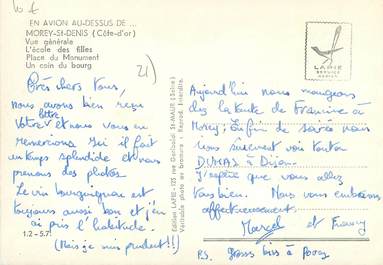 EN AVION AU-DESSUS DE ...
MOREY-St-DENIS (Côte-d'or)
Vue générale
L'école des filles
Place du Monument
Un coin du bourg
21)
Très chers tous,
nous avons bien reçu
votre lettre et nous vous en
remercions Ici il fait
un temps splendide et nous
prenons des photos.
Le vin bourguignon est
toujours aussi bon et j'en
ai pris l'habitude.
(Mais je suis prudent !!)
1.2 - 5.71
Edition LAPIE - 125 rue Garibaldi St-MAUR (Seine)
Véritable photo au bromure - Reprod. Interdite.
LAPIE
SERVICE
Aujourd'hui nous mangeons
chez la tante de Francine à
Morey; En fin de soirée nous
irons surement voir tonton
DUMAS à Dijon.
J'espère que vous allez
tous bien. Nous vous embrassons
affectueusement
Marcel et
P.S. grosses bises à